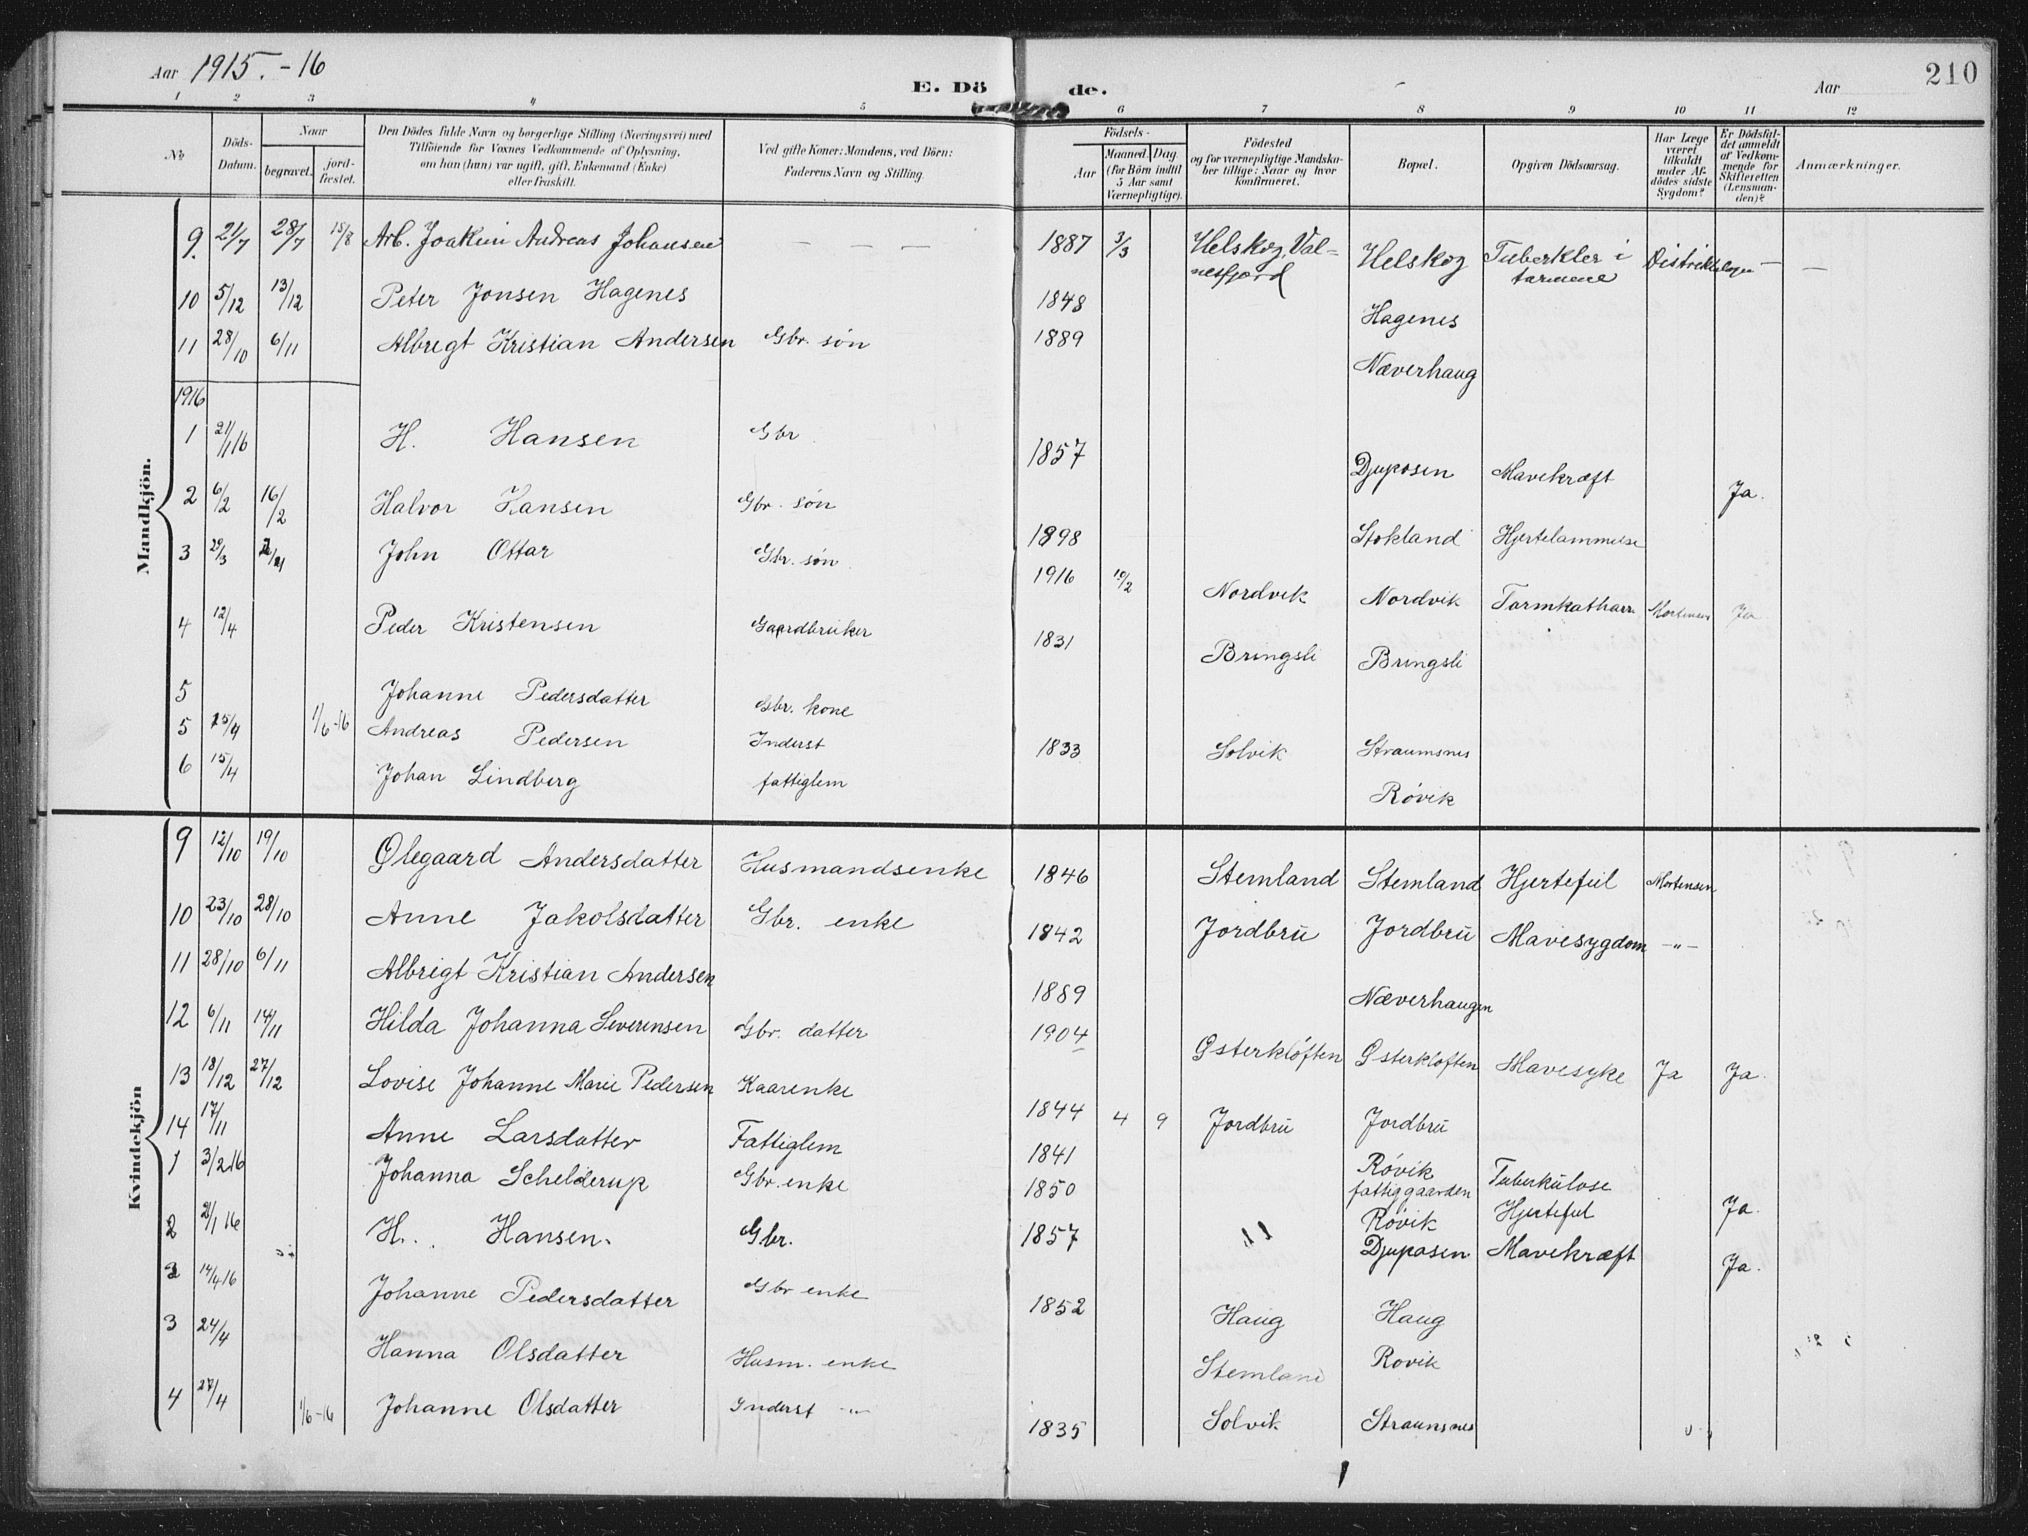 Aar 1915.-16
E. Dö de.
Aar
210
1 2 3 4 5 6 7 8 9 10 11 12
No
Döds-Datum.
Naar
begravet.
jord-fæstet.
Den Dödes fulde Navn og borgerlige Stilling (Næringsvei) med
Tilföiende for Voxnes Vedkommende af Oplysning,
om han (hun) var ugift, gift, Enkemand (Enke)
eller fraskilt.
Ved gifte Koner: Mandens, ved Börn:
Faderens Navn og Stilling.
Födsels-
Aar
Maaned. Dag.
(for Börn indtil
5 Aar samt
Værnepligtige).
Födested
og for værnepligtige Mandska-
ber tillige: Naar og hvor
konfirmeret.
Bopæl.
Opgiven Dödsaarsag.
Har Læge
været
tilkaldt
under Af-
dödes sidste
Sygdom?
Er Dödsfal-
det anmeldt
af Vedkom-
mende for
Skifteretten
(Lensman-
den)?
Anmærkninger.
Mandkjön.
9. 21/7 28/7 15/8 Arb. Joakim Andreas Johansen — — — 1887 3/3 Helskog, Val-
nesfjord Helskog Tuberkler i
tarmene Distriktslægen — —
10 5/12 13/12 Peter Jonsen Hagenes 1848 Hagenes
11 28/10 6/11 Albregt Kristian Andersen Gbr. søn 1889 Næverhaug
1916
1 21/1 16 H. Hansen Gbr 1857 Djuposen Mavekræft Ja.
2 6/2 16/2 Halvor Hansen Gbr. søn 1898 Stokland Hjertelammelse
3 29/3 John Ottar Gbr. søn 1916 10/2 Nordvik Nordvik Tarmkatharr Mortensen Ja
4 12/4 Peder Kristensen Gaardbruker 1831 Bringsli Bringsli
5 Johanne Pedersdatter Gbr. kone
5 25/4 1/6-16 Andreas Pedersen Inderst 1833 Solvik Straumsnes
6 15/4 Johan Lindberg fattiglem Røvik
Kvindekjön
9 12/10 19/10 Olegaard Andersdatter Husmandsenke 1846 Stemland Stemland Hjertefeil Mortensen
10 23/10 28/10 Anne Jakobsdatter Gbr. enke 1842 Jordbru Jordbru Mavesygdom -"-
11 28/10 6/11 Albrigt Kristian Andersen 1889 Næverhaugen
12 6/11 14/11 Hilda Johanna Severinsen Gbr. datter 1904 Østerkløften Østerkløften Mavesyke Ja Ja.
13 18/12 27/12 Lovise Johanne Marie Pedersen Kaarenke 1844 4 9 Jordbru Jordbru
14 17/11 Anne Larsdatter Fattiglem 1841 Røvik
fattiggaarden Tuberkulose
1 3/2 16 Johanna Schelderup Gbr. enke 1850 Røvik Hjertefeil Ja.
2 21/1 16 H. Hansen. Gbr. 1857 " Djuposen Mavekræft Ja.
2 14/4 16 Johanne Pedersdatter Gbr enke 1852 Haug Haug
3 24/4 Hanna Olsdatter Husm. enke Stemland Rovik
4 27/4 1/6-16 Johanne Olsdatter Inderst -"- 1835 Solvik Straumsnes